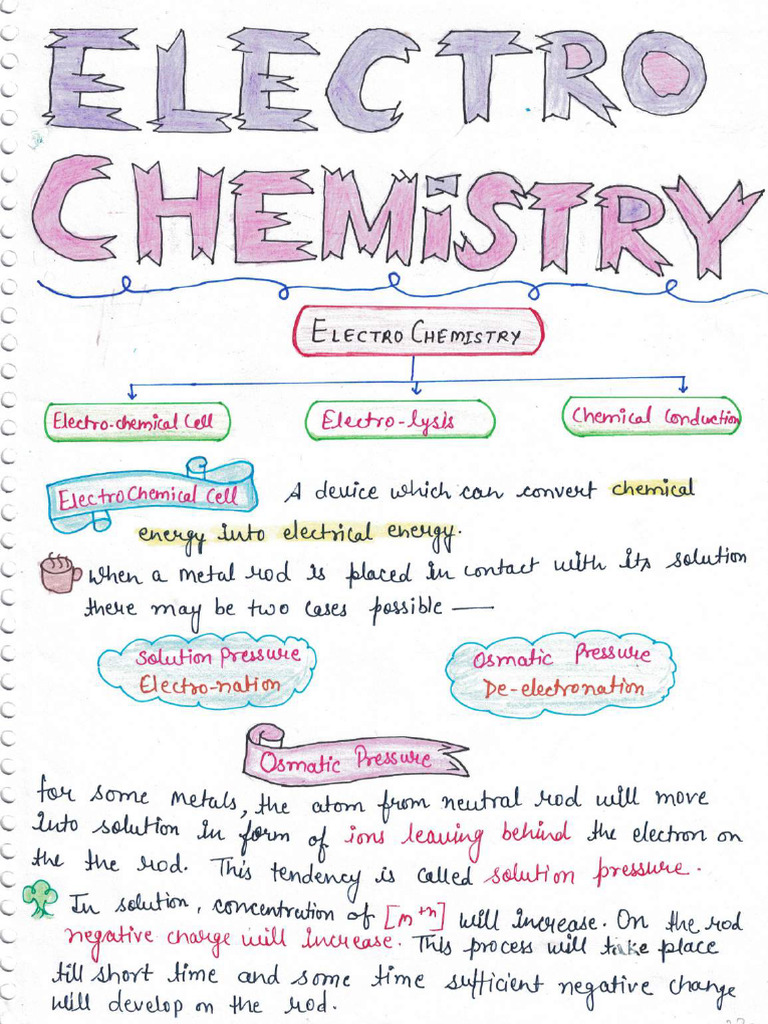 ELECTRO
CHEMiSTRY
ELECTRO CHEMISTRY
Electro-chemical Cell
Electro-lysis
Chemical Conduction
ElectroChemical Cell
A device which can convert chemical
energy into electrical energy.
when a metal rod is placed in contact with its solution
there may be two cases possible —
Solution Pressure
Electro-nation
Osmatic Pressure
De-electronation
Osmatic Pressure
for some metals, the atom from neutral rod will move
into solution in form of ions leaving behind the electron on
the the rod. This tendency is called solution pressure.
In solution, concentration of [m⁺ⁿ] will increase. On the rod
negative charge will increase. This process will take place
till short time and some time sufficient negative charge
will develop on the rod.